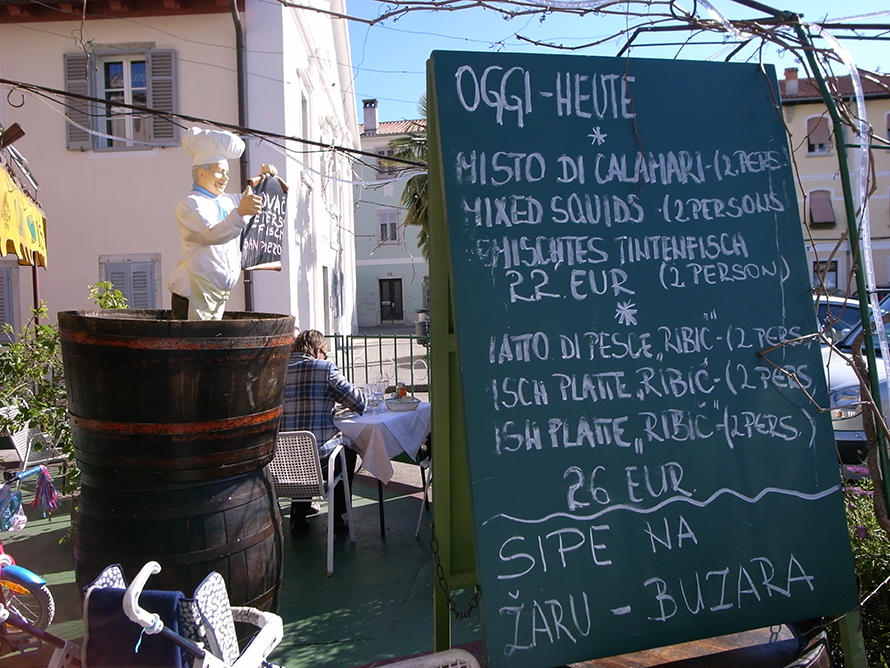 OGGI - HEUTE
*
MISTO DI CALAMARI - (2 PERS.
MIXED SQUIDS - (2 PERSONS
EMISCHTES TINTENFISCH
22 EUR (2 PERSON)
*
IATTO DI PESCE „RIBIČ" - (2 PERS
ISCH PLATTE „RIBIČ" - (2 PERS
ISH PLATTE „RIBIČ" - (2 PERS.)
26 EUR
SIPE NA
ŽARU - BUZARA
OVAČ
PETERS
FISCH
SAN PIERO